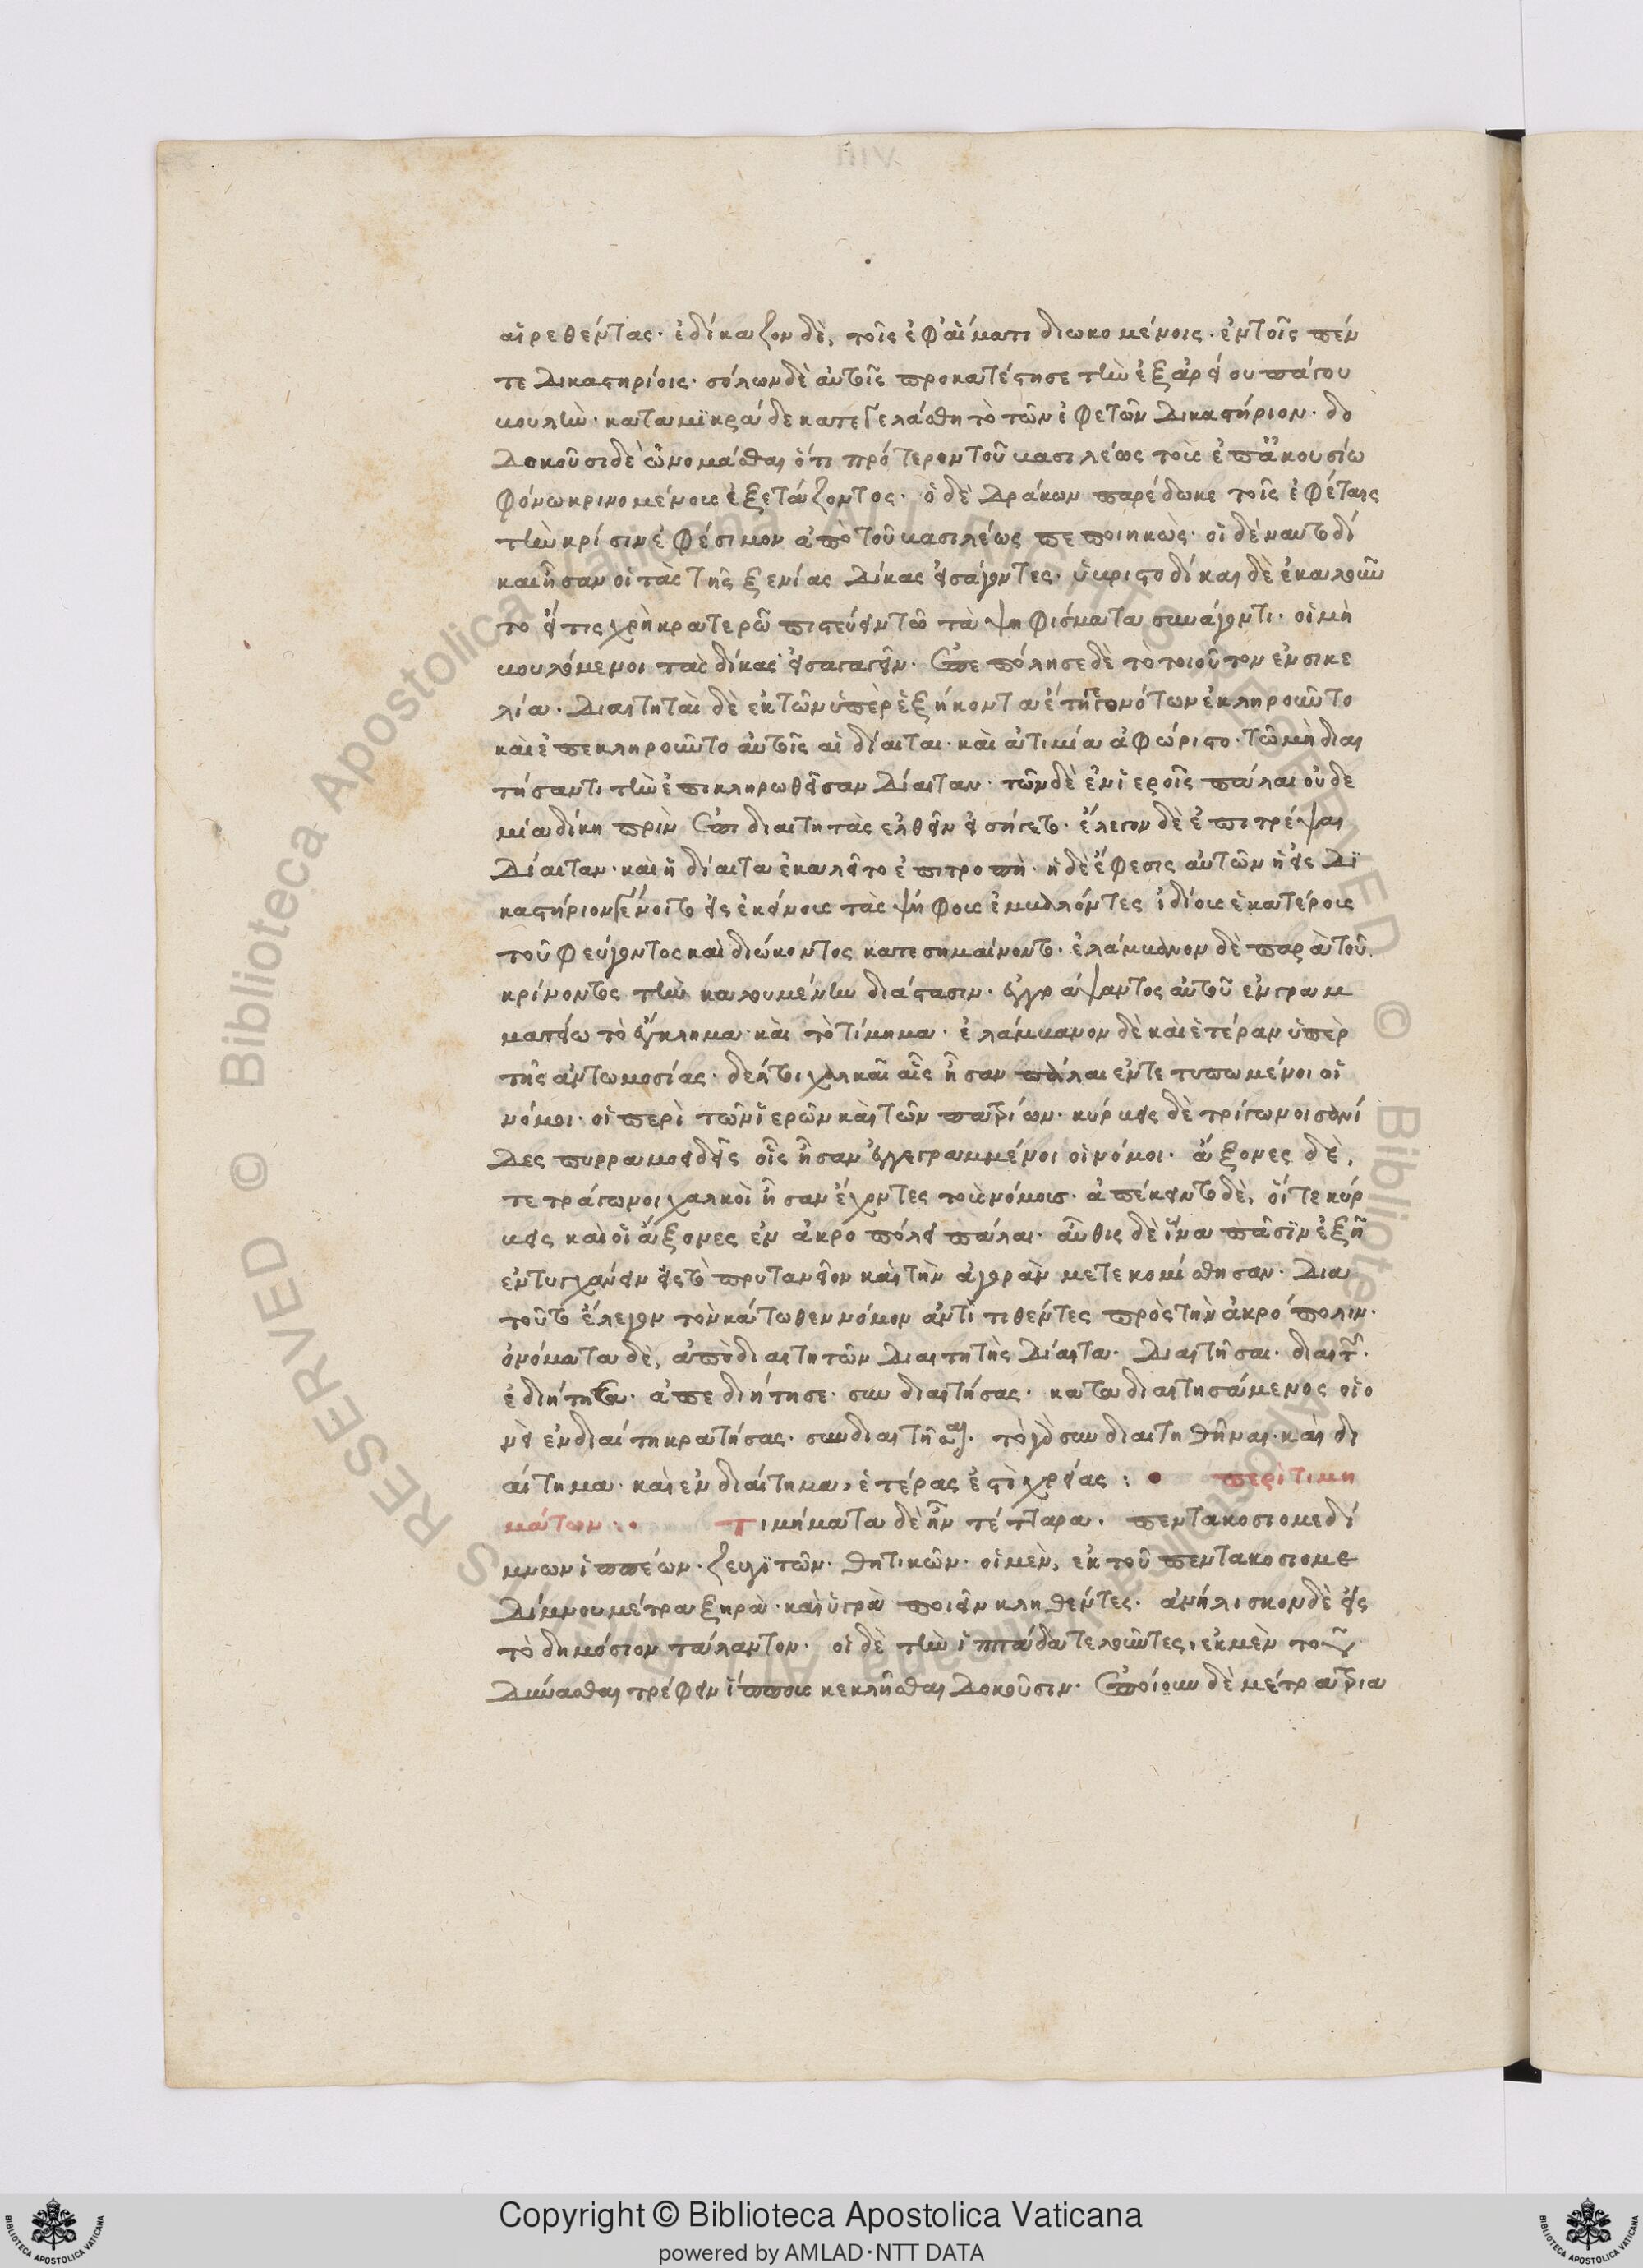 αἱρεθέντας· ἐδίκαζον δὲ, τοῖς ἐφ' αἵματι διωκομένοις· ἐν τοῖς πέν
τε δικαστηρίοις· σόλων δὲ αὐτοῖς προκατέστησε τὴν ἐξ ἀρείου πάγου
βουλὴν· κατὰ μικρὰ δὲ κατεγελάσθη τὸ τῶν ἐφετῶν δικαστήριον· δο
δοκοῦσι δὲ ὠνομάσθαι ὅτι πρότερον τοῦ βασιλέως τοὺς ἐπ' ἀκουσίω
φόνω κρινομένους ἐξετάζοντος· ὁ δὲ δράκων παρέδωκε τοῖς ἐφέταις
τὴν κρίσιν ἐφέσιμον ἀπὸ τοῦ βασιλέως πεποιηκὼς· οἱ δὲ ναυτοδί
και ἦσαν οἱ τὰς τῆς ξενίας δίκας εἰσάγοντες· ὑβριστοδίκαι δὲ ἐκαλοῦν
το εἴ τις χρὴ κρατερῶ πιστεύειν τῶ τὰ ψηφίσματα συνάγοντι· οἱ μὴ
βουλόμενοι τὰς δίκας εἰσαγαγεῖν· ἐπεπόλησε δὲ τὸ τοιοῦτον ἐν σικε
λία· διαιτηταὶ δὲ ἐκ τῶν ὑπὲρ ἑξήκοντα ἔτη γεγονότων ἐκληροῦντο
καὶ ἐπεκληροῦντο αὐτοῖς αἱ δίαιται· καὶ ἀτιμία ἀφώριστο· τῶ μὴ διαι
τήσαντι τὴν ἐπικληρωθεῖσαν δίαιταν· τῶν δὲ ἐν ἱεροῖς πάλαι οὐδε
μία δίκη πρὶν ἐπὶ διαιτητὰς ἐλθεῖν εἰσήγετο· ἔλεγον δὲ ἐπιτρέψαι
δίαιταν· καὶ ἡ δίαιτα ἐκαλεῖτο ἐπιτροπὴ· ἡ δὲ ἔφεσις αὐτῶν ἡ εἰς δι
καστήριον γένοιτο εἰς ἐκείνους τὰς ψήφους ἐμβαλόντες ἰδίους ἑκατέροις
τοῦ φεύγοντος καὶ διώκοντος κατεσημαίνοντο· ἐλάμβανον δὲ παρὰ τοῦ
κρίνοντος τὴν καλουμένην διάστασιν· ἐγγράψαντος αὐτοῦ ἐν γραμ
ματείω τὸ ἔγκλημα καὶ τὸ τίμημα· ἐλάμβανον δὲ καὶ ἑτέραν ὑπὲρ
τῆς ἀντωμοσίας· δέλτοι χαλκαῖ αἷς ἦσαν πάλαι ἐντετυπωμένοι οἱ
νόμοι· οἱ περὶ τῶν ἱερῶν καὶ τῶν πατρίων· κύρβεις δὲ τρίγωνοι σανί
δες πυρραμοειδεῖς οἷς ἦσαν ἐγγεγραμμένοι οἱ νόμοι· ἄξονες δὲ,
τετράγωνοι χαλκοὶ ἦσαν ἔχοντες τοὺς νόμους· ἀπέκειντο δὲ, οἵ τε κύρ
βεις καὶ οἱ ἄξονες ἐν ἀκροπόλει πάλαι· αὖθις δὲ ἵνα πᾶσιν ἐξῆ
ἐντυγχάνειν εἰς τὸ πρυτανεῖον καὶ τὴν ἀγορὰν μετεκομίσθησαν· διὰ
τοῦτο ἔλεγον τὸν κάτωθεν νόμον ἀντιτιθέντες πρὸς τὴν ἀκρόπολιν·
ὀνόματα δὲ, ἀπὸ διαιτητῶν διαιτητὴς δίαιτα· διαιτῆσαι· διαιτ·
ἐδιήτησα· ἀπεδιήτησε· συνδιαιτήσας· καταδιαιτησάμενος οἷο
νεὶ ἐν διαίτη κρατήσας· συνδιαιτῆσαι· τὸ γὰρ συνδιαιτηθῆναι· καὶ δι
αίτημα· καὶ ἐνδιαίτημα, ἑτέρας ἐστὶ χρείας : • περὶ τιμη
μάτων :• τιμήματα δὲ ἦν τέτταρα· πεντακοσιομεδί
μνων ἱππέων· ζευγιτῶν· θητικῶν· οἱ μὲν, ἐκ τοῦ πεντακοσιομε
δίμνου μέτρα ξηρὰ· καὶ ὑγρὰ ποιεῖν κληθέντες· ἀνήλισκον δὲ εἰς
τὸ δημόσιον τάλαντον· οἱ δὲ τὴν ἱππάδα τελοῦντες, ἐκ μὲν τοῦ
δύνασθαι τρέφειν ἵππους κεκλῆσθαι δοκοῦσιν· ἐποίουν δὲ μέτρα τρια